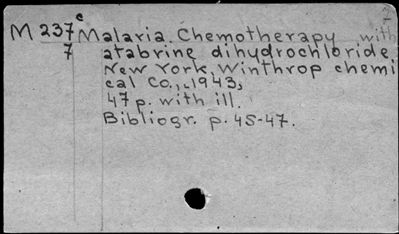 M 237c Malaria. Chemotherapy with
7 atabrine dihydrochloride.
New York, Winthrop chemi
cal Co., 1943,
47 p. with ill.
Bibliogr. p. 45-47.